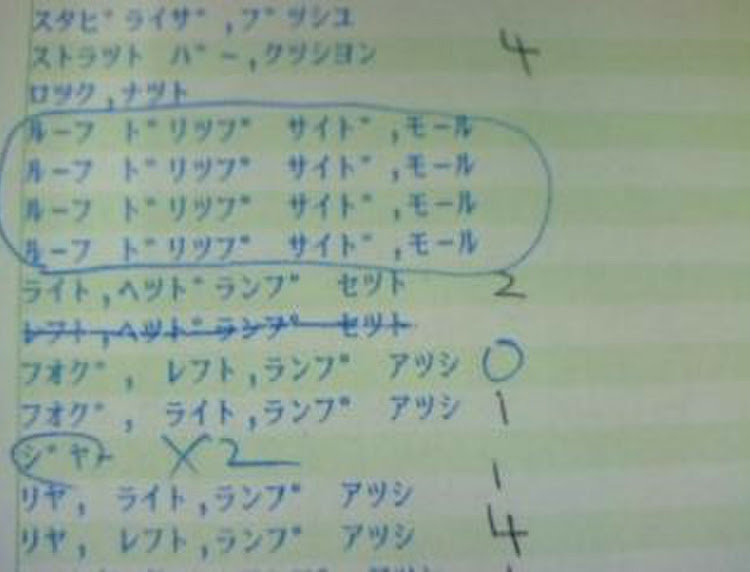 スタビ゛ライザ゛,ブ゛ツシユ
ストラツト バ゛ー,クツシヨン 4
ロツク,ナツト
ルーフ ド゛リツプ゜ サイド゛,モール
ルーフ ド゛リツプ゜ サイド゛,モール
ルーフ ド゛リツプ゜ サイド゛,モール
ルーフ ド゛リツプ゜ サイド゛,モール
ライト,ヘツド゛ランプ゜ セツト 2
レフト,ヘツド゛ランプ゜ セツト
フオグ゛, レフト,ランプ゜ アツシ 0
フオグ゛, ライト,ランプ゜ アツシ 1
×2
リヤ, ライト,ランプ゜ アツシ 1
リヤ, レフト,ランプ゜ アツシ 4